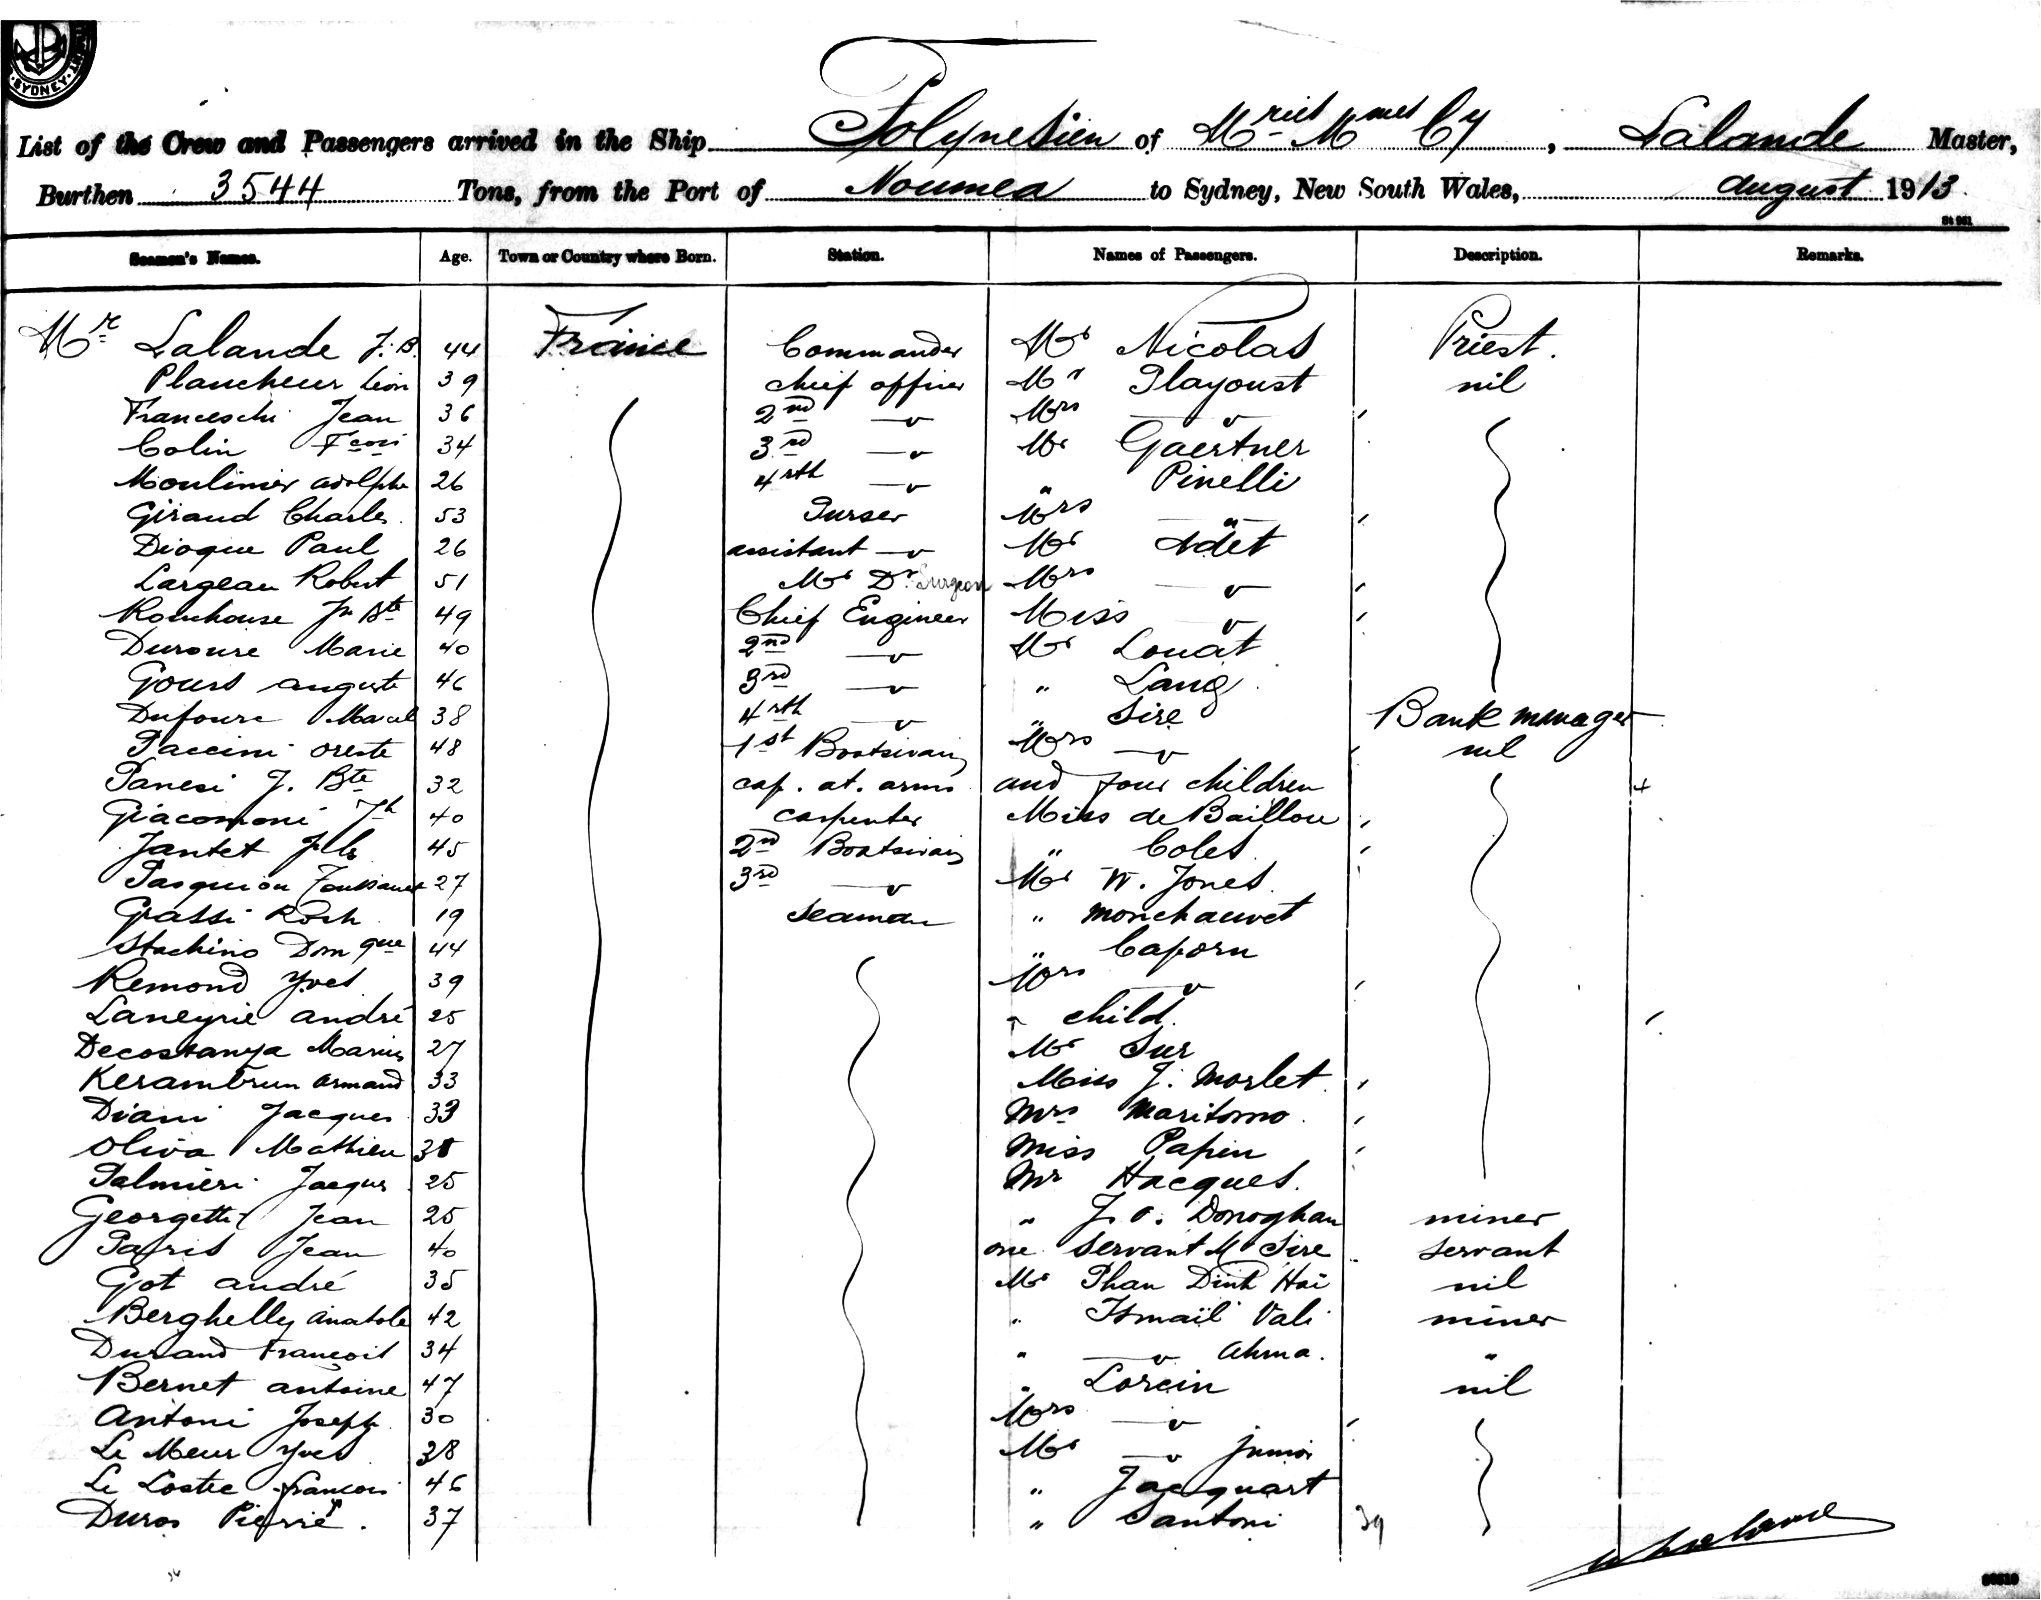 SYDNEY
List of the Crew and Passengers arrived in the Ship Polynesien of Mries Mmes Cy, Lalande Master,
Burthen 3544 Tons, from the Port of Noumea to Sydney, New South Wales, august 1913.
Seamen's Names. Age. Town or Country where Born. Station. Names of Passengers. Description. Remarks.
Mr Lalande J. B. 44 France Commander Mr Nicolas Priest.
Plancheur Léon 39 chief officer Mr Playoust nil
Franceschi Jean 36 2nd —v— Mrs —v—
Colin Fcois 34 3rd —v— Mr Gaertner
Moulinier adolphe 26 4rth —v— " Pinelli
Giraud Charles. 53 Purser Mrs — " —
Dioque Paul 26 assistant —v— Mr Adet
Largeau Robert 51 Mr Dr Surgeon Mrs —v—
Jn Bte 49 Chief Engineer Miss —v—
Marie 40 2nd —v— Mr Louat
Gours auguste 46 3rd —v— " Lang.
Dufoure Marcel 38 4rth —v— " Sire Bank manager
Paccini oreste 48 1st Boatswain Mrs —v— nil
Panesi J. Bte 32 cap. at. arms and four children 4
Giacomoni Jh 40 carpenter Miss de Baillou
Jantet Jles 45 2nd Boatswain " Coles
Pasquiou Toussaint 27 3rd —v— Mr W. Jones.
Grassi Roch 19 seaman " monchauvet
Stachino Domque 44 " Caporn
Remond Yves 39 Mrs —v—
Laneyrie andré 25 " child.
Decostanza Marius 27 Mr Sur
Kerambrun armand 33 Miss J. Morlet.
Diani Jacques 33 Mrs Maritorno.
Oliva Mathieu 38 Miss Papin
Palmieri Jacques 25 Mr Hacques.
Georgetti Jean 25 " J. O. Donoghau miner
Patris Jean 40 one servant Mr Sire servant
Got andré 35 Mr Phan Dinh Hoi nil
Berghelly anatole 42 " Ismaïl Vali miner
Durand François 34 " —v— ahma. "
Bernet antoine 47 " Lorcin nil
Antoni Joseph 30 Mrs —v—
Le Meur Yves 38 Mr —v— junior
Le Lostec françois 46 " Jacquart
Duros Pierre. 37 " Santoni 39